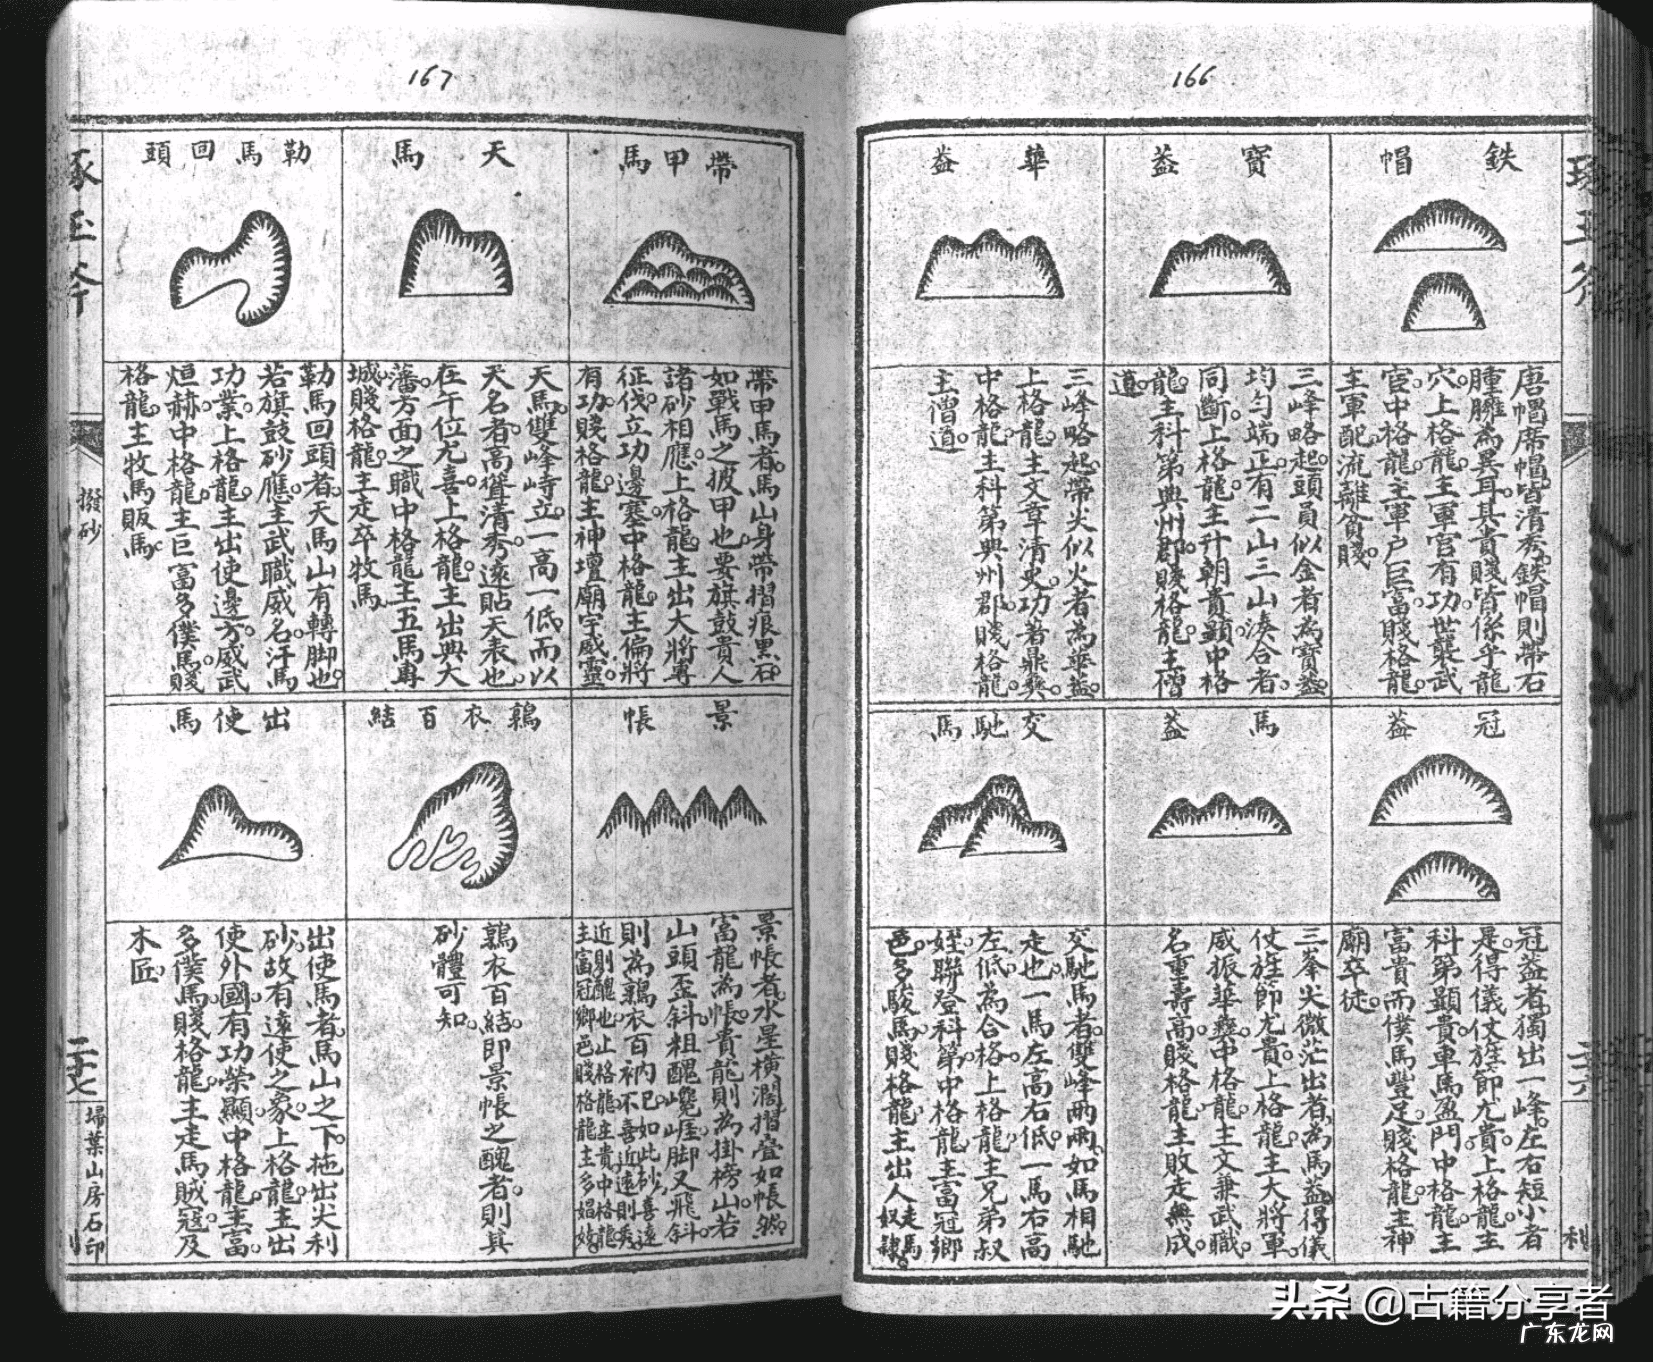 166
鉄帽
唐帽席帽皆清秀鉄帽則帶石
腫臃為異耳其貴賤皆係乎龍
穴上格龍主軍官有功世襲武
宦中格龍主軍戶巨富賤格龍
主軍配流離貧賤
寶蓋
三峰略起頭員似金者為寶蓋
均勻端正有二山三山湊合者
同斷上格龍主升朝貴顯中格
龍主科第典州郡賤格龍主僧
道
華蓋
三峰略起帶尖似火者為華蓋
上格龍主文章清史功著鼎彞
中格龍主科第典州郡賤格龍
主僧道
冠蓋
冠蓋者獨出一峰左右短小者
是得儀仗旌節尤貴上格龍主
科第顯貴車馬盈門中格龍主
富貴而僕馬豐足賤格龍主神
廟卒徒
馬蓋
三峯尖微茫出者為馬蓋得儀
仗旌節尤貴上格龍主大將軍
威振華彞中格龍主文兼武職
名重壽高賤格龍主敗走無成
交馳馬
交馳馬者雙峰兩兩如馬相馳
走也一馬左高右低一馬右高
左低為合格上格龍主兄弟叔
姪聯登科第中格龍主富冠鄉
邑多駿馬賤格龍主出人走馬奴隸
利
167
帶甲馬
帶甲馬者馬山身帶摺痕黑石
如戰馬之披甲也要旗鼓貴人
諸砂相應上格龍主出大將專
征伐立功邊塞中格龍主偏將
有功賤格龍主神壇廟宇威靈
天馬
天馬雙峰峙立一高一低而以
天名者高聳清秀遠貼天表也
在午位尤喜上格龍主出典大
藩方面之職中格龍主五馬專
城賤格龍主走卒牧馬
勒馬回頭
勒馬回頭者天馬山有轉脚也
若旗鼓砂應主武職威名汗馬
功業上格龍主出使邊方威武
烜赫中格龍主巨富多僕馬賤
格龍主牧馬販馬
景帳
景帳者水星橫濶摺疊如帳然
富龍為帳貴龍則為掛榜山若
山頭歪斜粗醜巉崖脚又飛斜
則為鶉衣百衲已如此砂喜遠
不喜近遠則秀
近則醜也上格龍主貴中格龍
主富冠鄉邑賤格龍主多娼妓
鶉衣百結
鶉衣百結即景帳之醜者則其
砂體可知
出使馬
出使馬者馬山之下拖出尖利
砂故有遠使之象上格龍主出
使外國有功榮顯中格龍主富
多僕馬賤格龍主走馬賊寇及
木匠
琢玉斧
撥砂
二十七
埽葉山房石印
头条 @古籍分享者
广东龙网